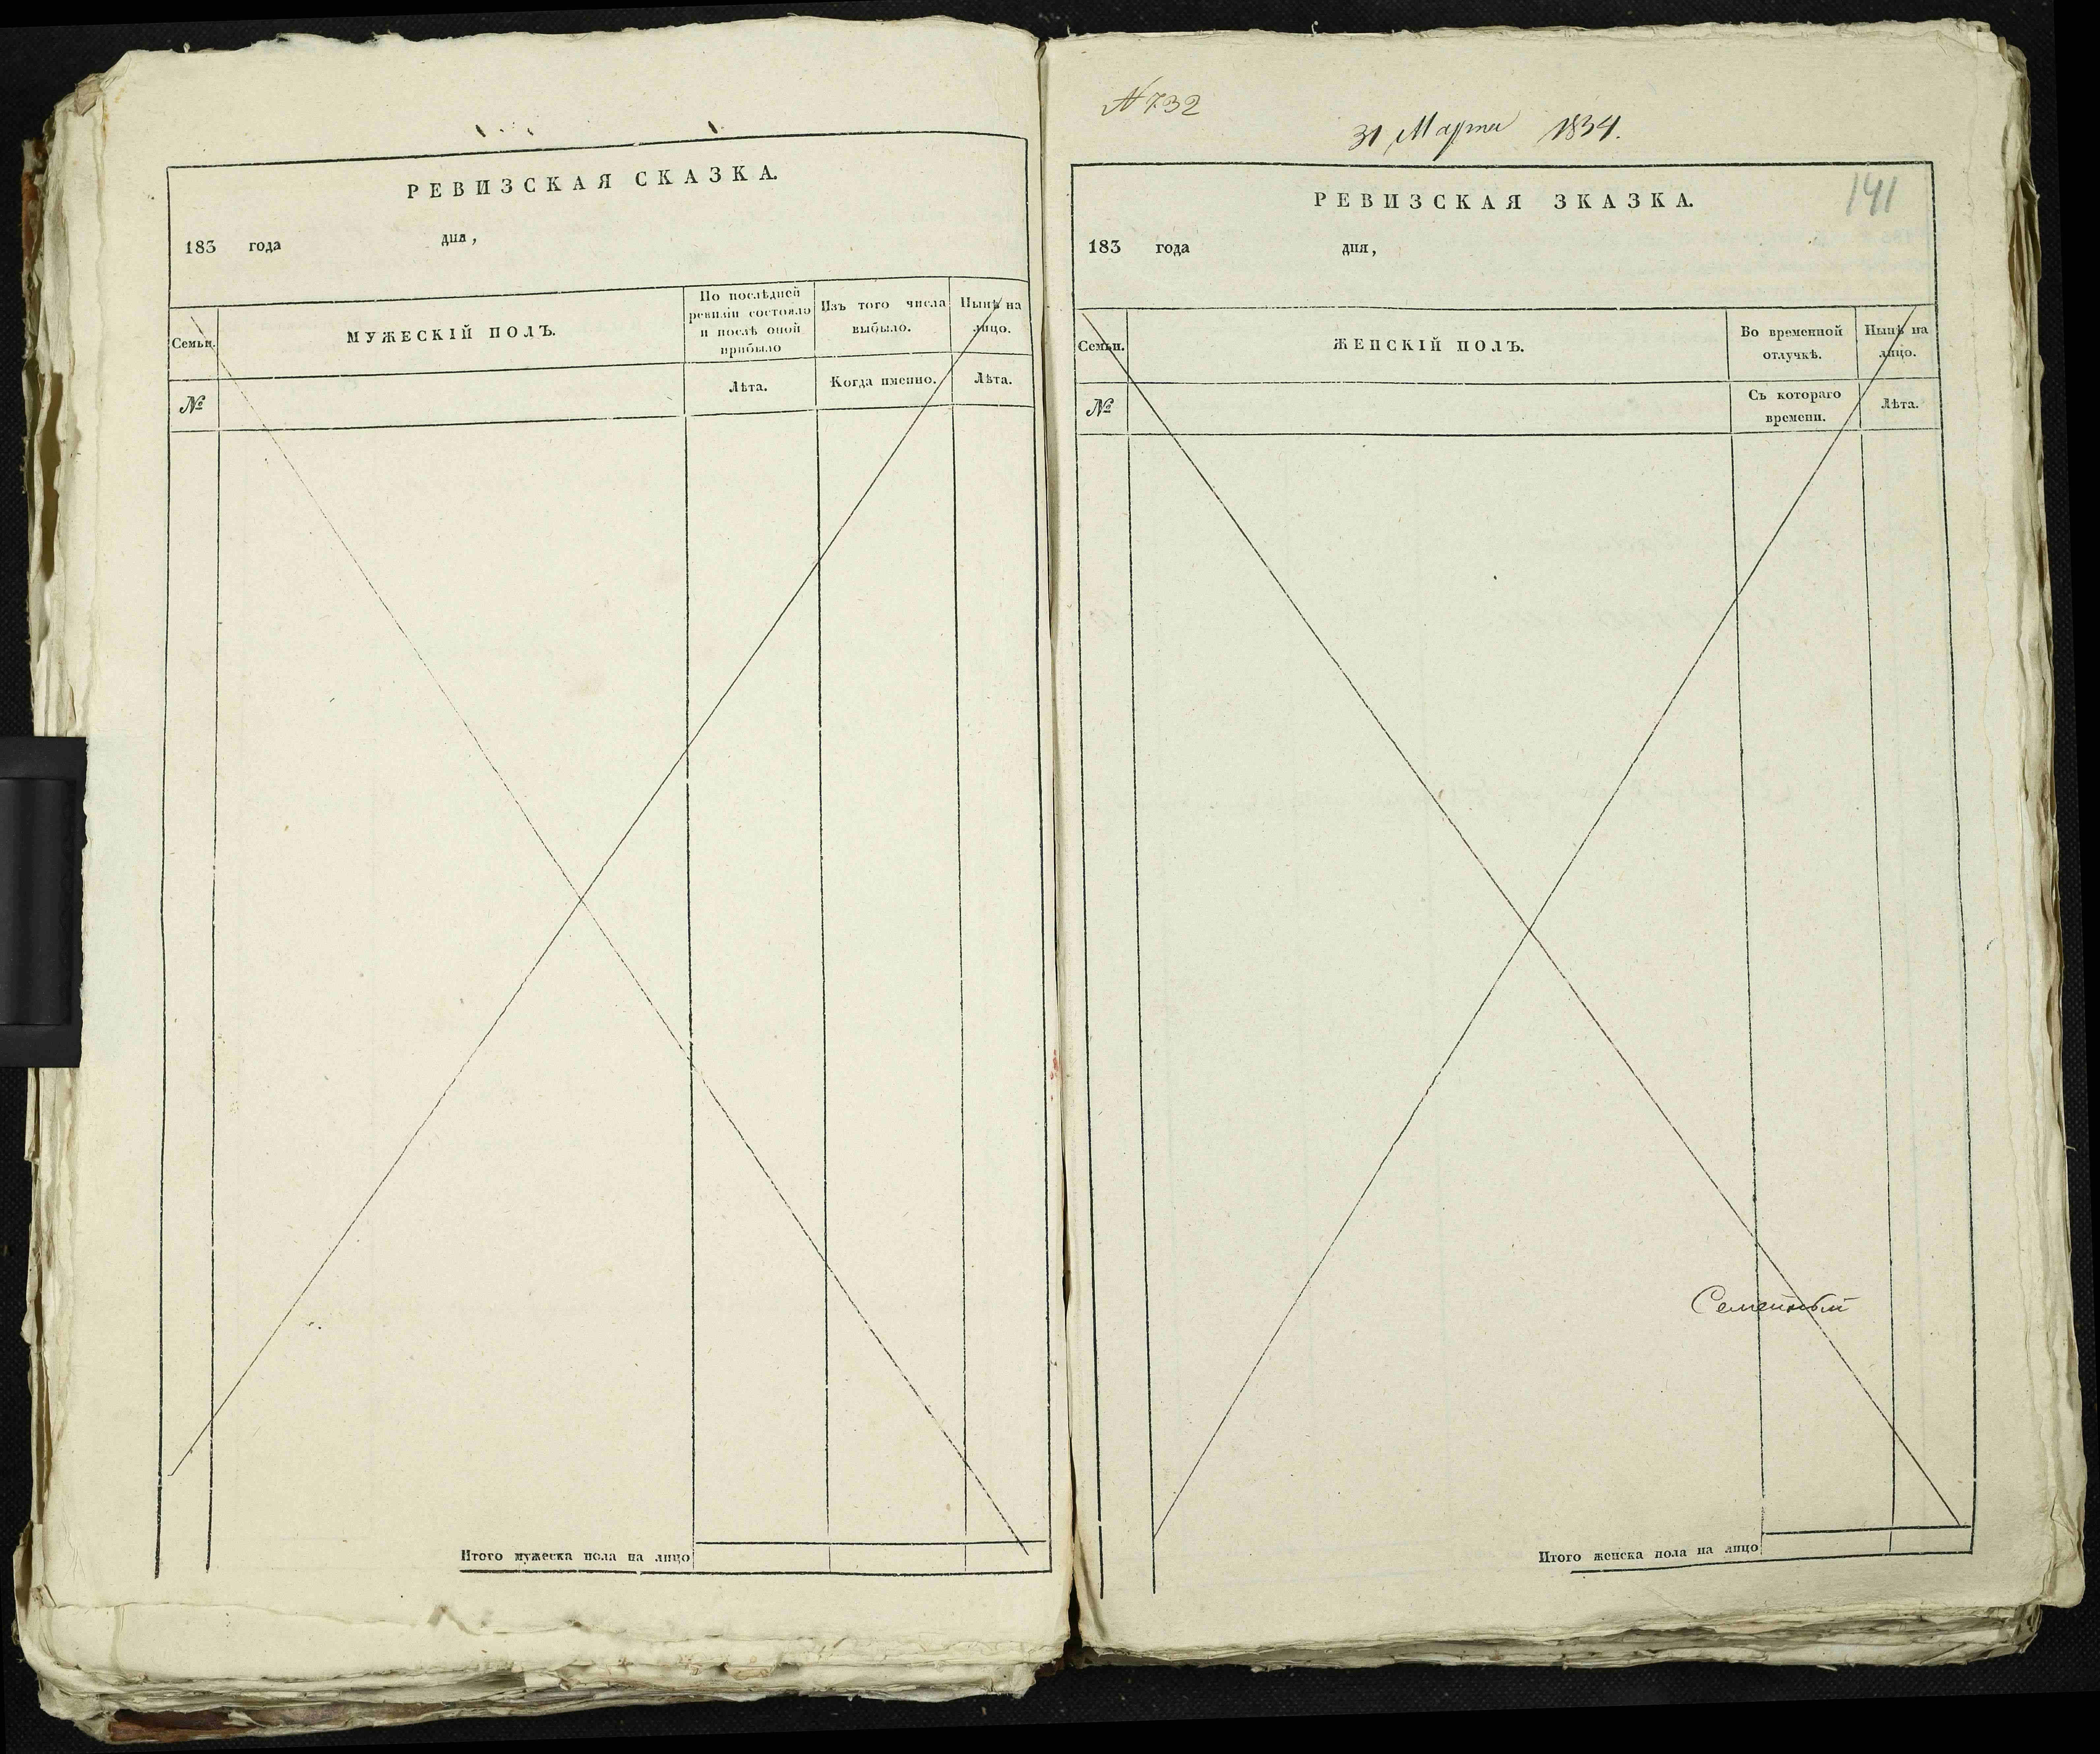 РЕВИЗСКАЯ СКАЗКА.
183 года дня,
Семьи.
МУЖЕСКІЙ ПОЛЪ.
По послѣдней
ревизіи состояло
и послѣ оной
прибыло
Изъ того числа
выбыло.
Нынѣ на
лицо.
№
Лѣта.
Когда именно.
Лѣта.
Итого мужеска пола на лицо
N 732
31 Марта 1834.
141
РЕВИЗСКАЯ ЗКАЗКА.
183 года дня,
Семьи.
ЖЕНСКІЙ ПОЛЪ.
Во временной
отлучкѣ.
Нынѣ на
лицо.
№
Съ котораго
времени.
Лѣта.
Семейный
Итого женска пола на лицо